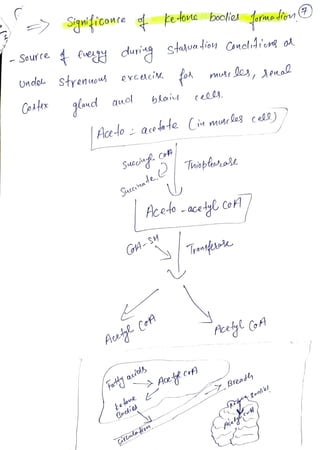 ⑦
⇒ Significance of ketone bodies formation
- Source of energy during starvation conditions or
under strenuous exercise for muscles, renal
cortex gland and brain cells.
Aceto-acetate (in muscles cell)
Succinyl CoA
Succinate
Thiophorase
Aceto-acetyl CoA
CoA-SH
Transferase
Acetyl CoA
Acetyl CoA
Fatty acids → Acetyl CoA
Ketone
Bodies
Circulation
→ Breath